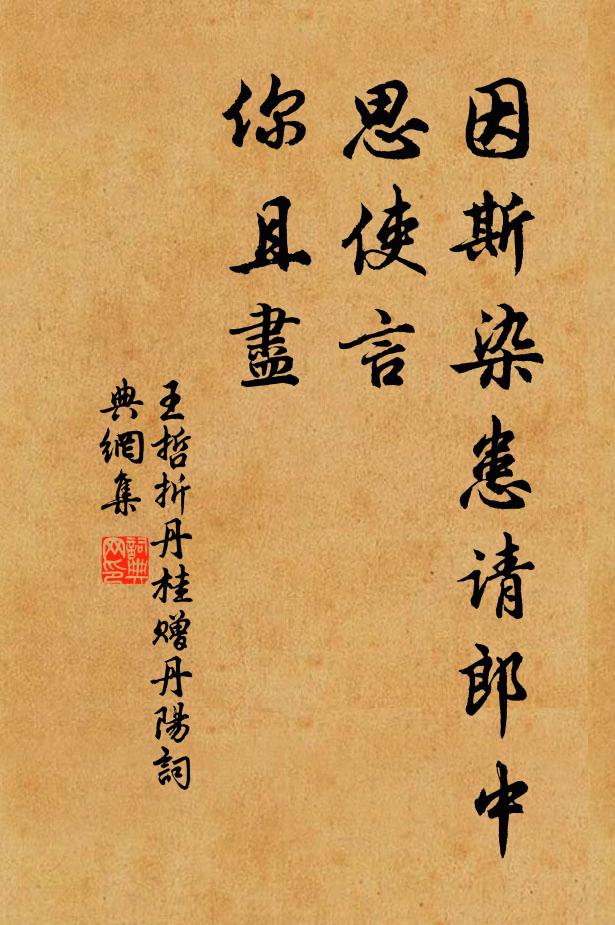 因斯染患请郎中
思使言
你且盡
王哲折丹桂赠丹陽詞
典網集
詞典
网印